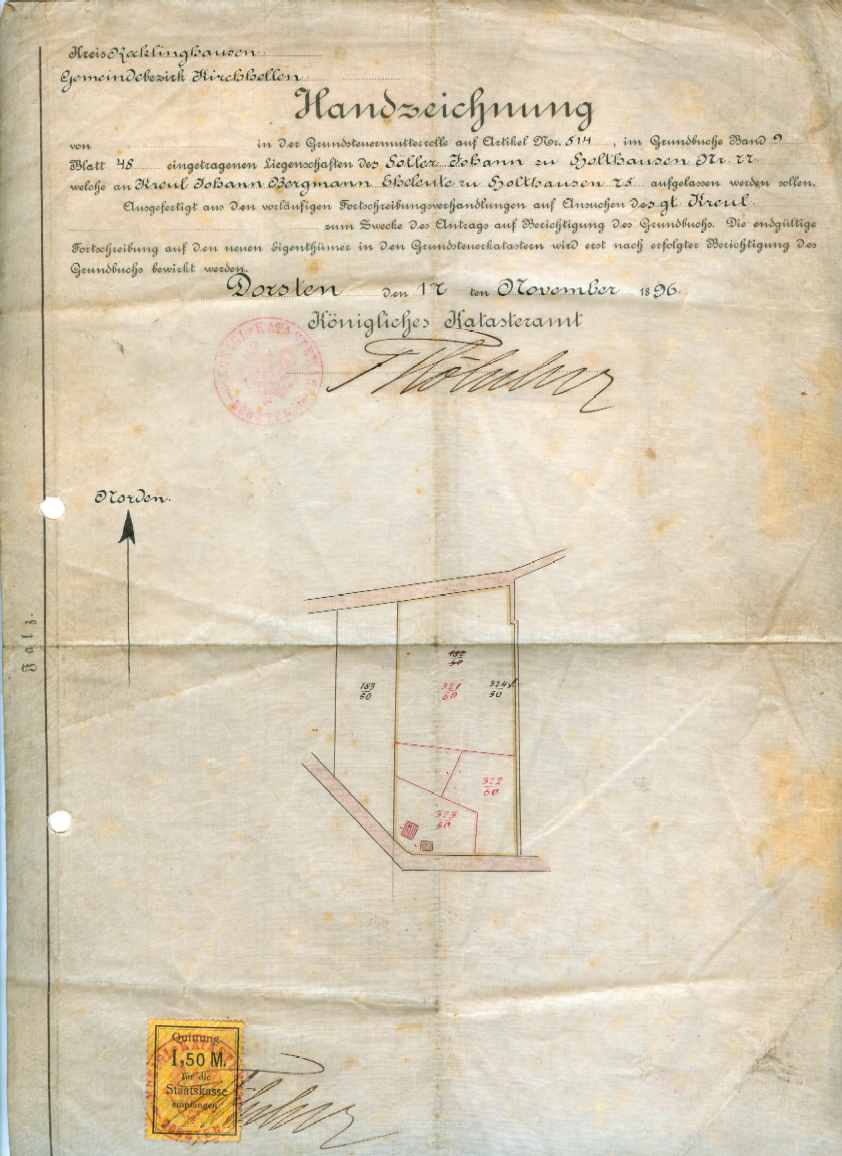 Kreis Recklinghausen
Gemeindebezirk Kirchhellen
Handzeichnung
von in der Grundsteuermutterrolle auf Artikel Nr. 514, im Grundbuche Band 9
Blatt 48 eingetragenen Liegenschaften des Johann zu Holthausen Nr. 22
welche an Kreul Johann Bergmann zu Holthausen 25 aufgelassen werden sollen.
Ausgefertigt aus den vorläufigen Fortschreibungsverhandlungen auf Ansuchen des gt. Kreul
zum Zwecke des Antrags auf Berichtigung des Grundbuchs. Die endgültige
Fortschreibung auf den neuen Eigenthümer in den Grundsteuerkatastern wird erst nach erfolgter Berichtigung des
Grundbuchs bewirkt werden.
Dorsten den 12 ten November 1896.
Königliches Katasteramt
Norden.
182
50
183
50
321
60
324
50
322
60
323
50
Quittung
1,50 M.
für die
Staatskasse
empfangen